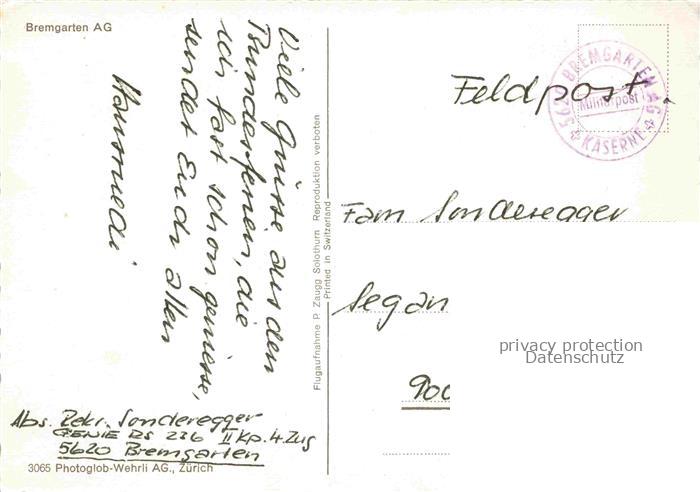 Bremgarten AG
Viele Grüsse aus den
Bundesferien, die
ich fast schon geniesse,
sendet Euch allen
Hansruedi
Abs. Rekr. Sonderegger
GENIE RS 236 II Kp. 4. Zug
5620 Bremgarten
3065 Photoglob-Wehrli AG., Zürich
Flugaufnahme P. Zaugg Solothurn Reproduktion verboten
Printed in Switzerland
Feldpost.
5620 BREMGARTEN
Militärpost
KASERNE
Fam Sonderegger
Segan
900
privacy protection
Datenschutz